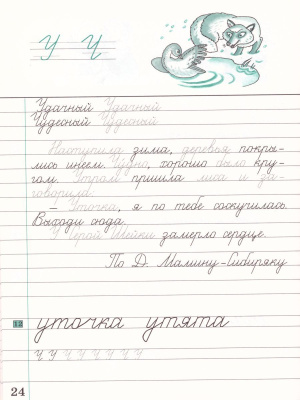 У Ч
Удачный Удачный
Чудесный Чудесный
Наступила зима, деревья покры-
лись инеем. Чудно, хорошо было кру-
гом. Утром пришла лиса и за-
говорила:
– Уточка, я по тебе соскучилась.
Выходи сюда.
У Серой Шейки замерло сердце.
По Д. Мамину-Сибиряку
12 уточка утята
Ч У Ч У Ч У Ч У
24